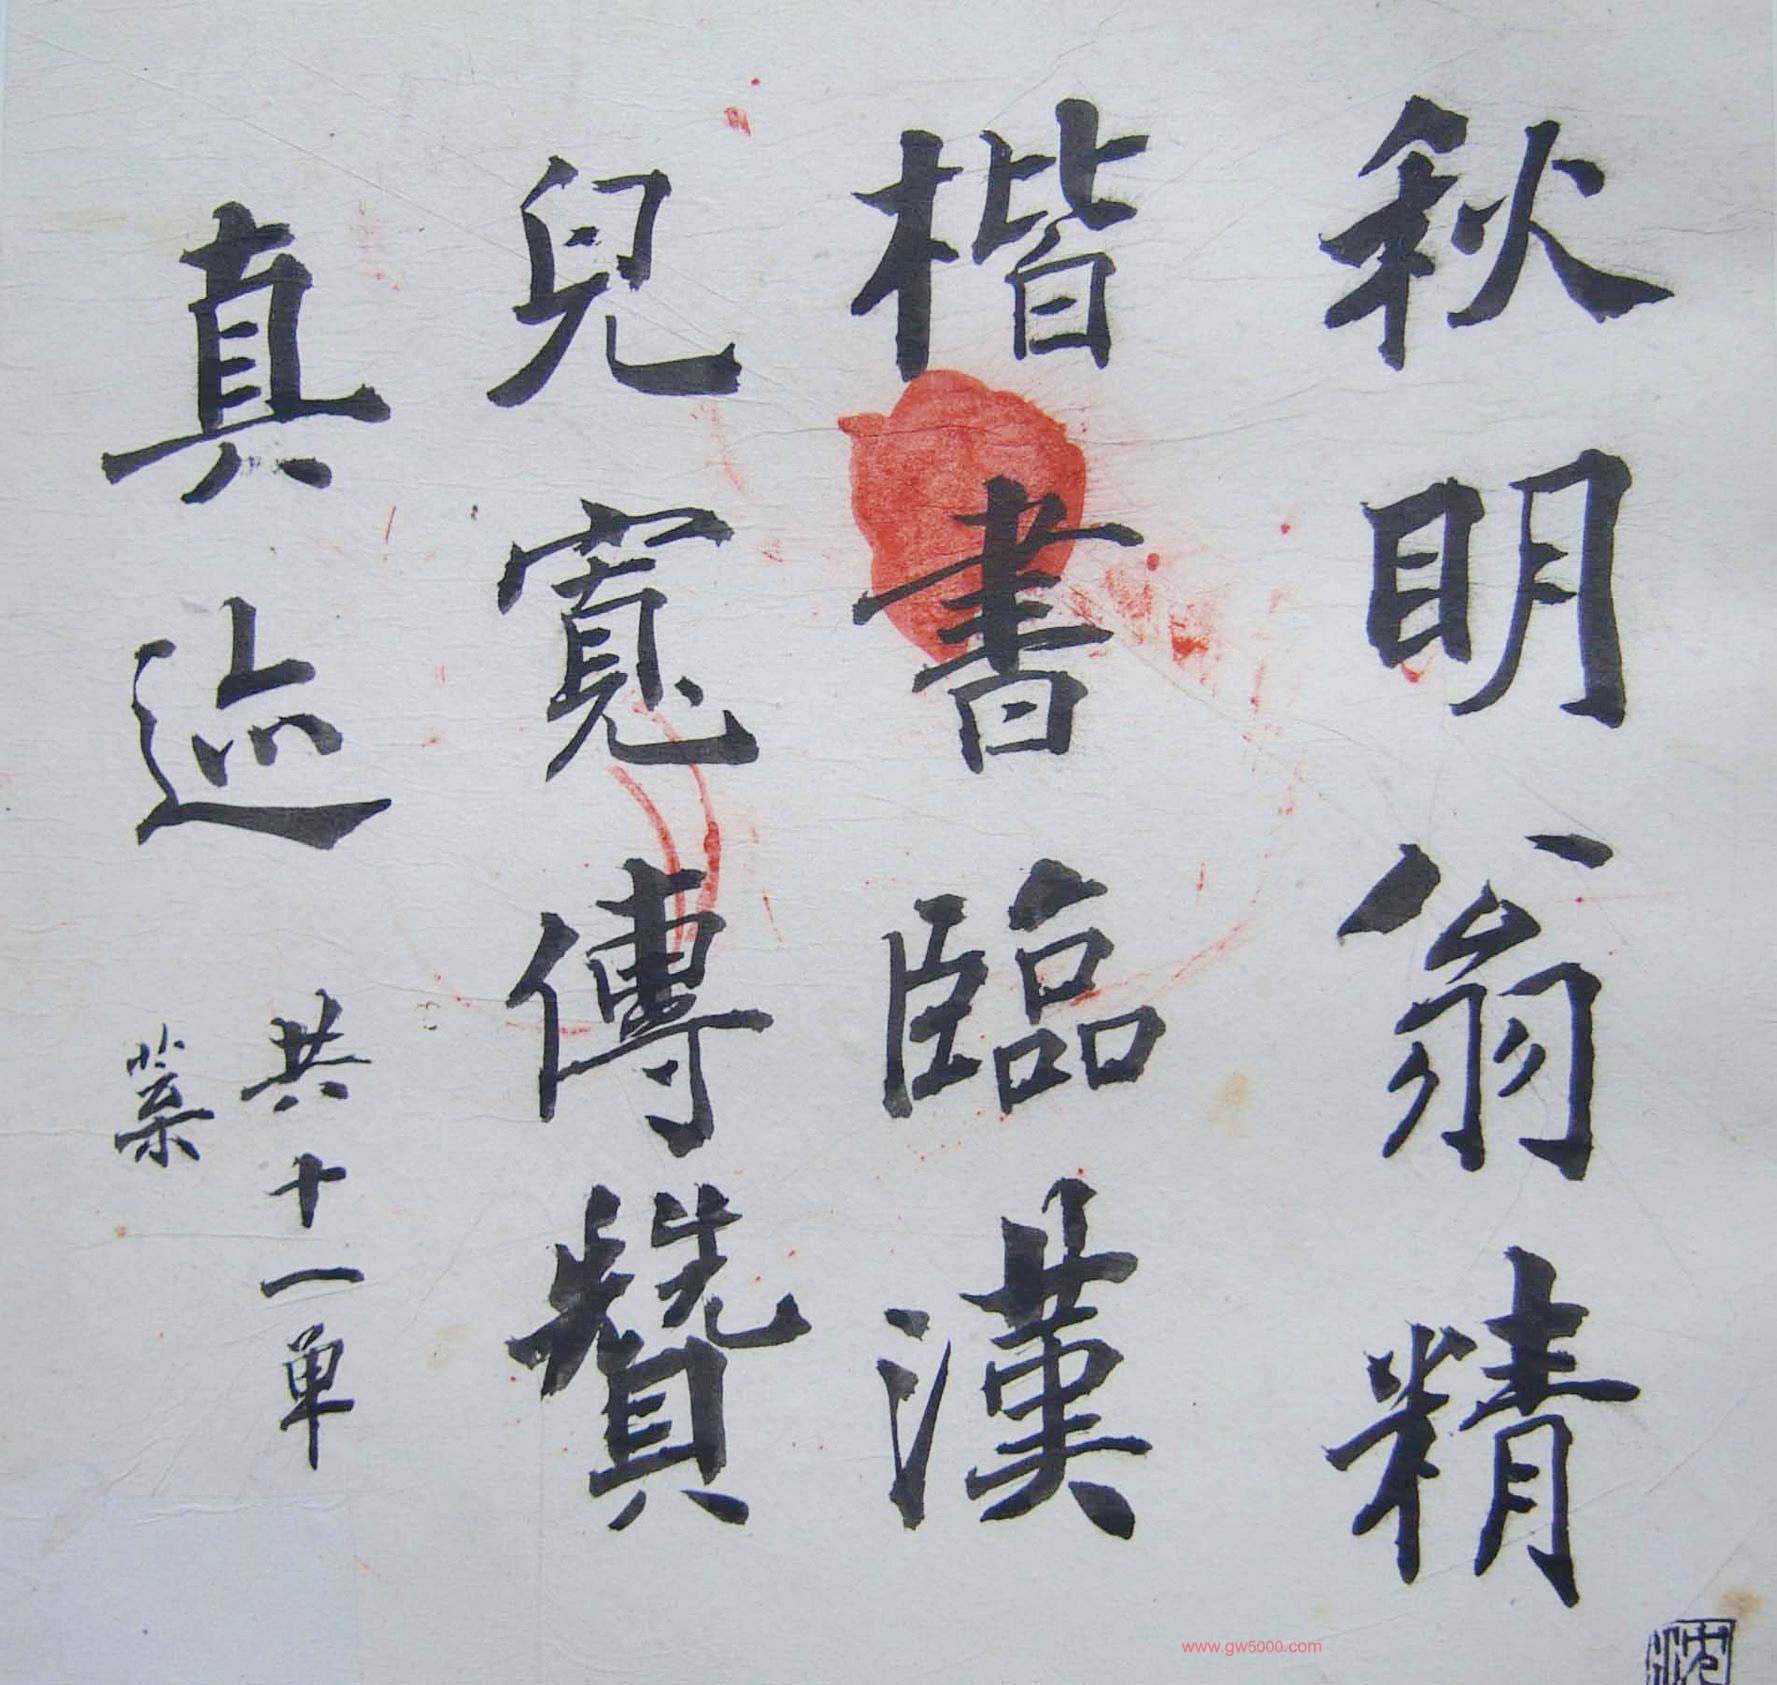 秋明翁精
楷書臨漢
兒寬傳贊
真迹
共十一單
葉
www.gw5000.com
沈